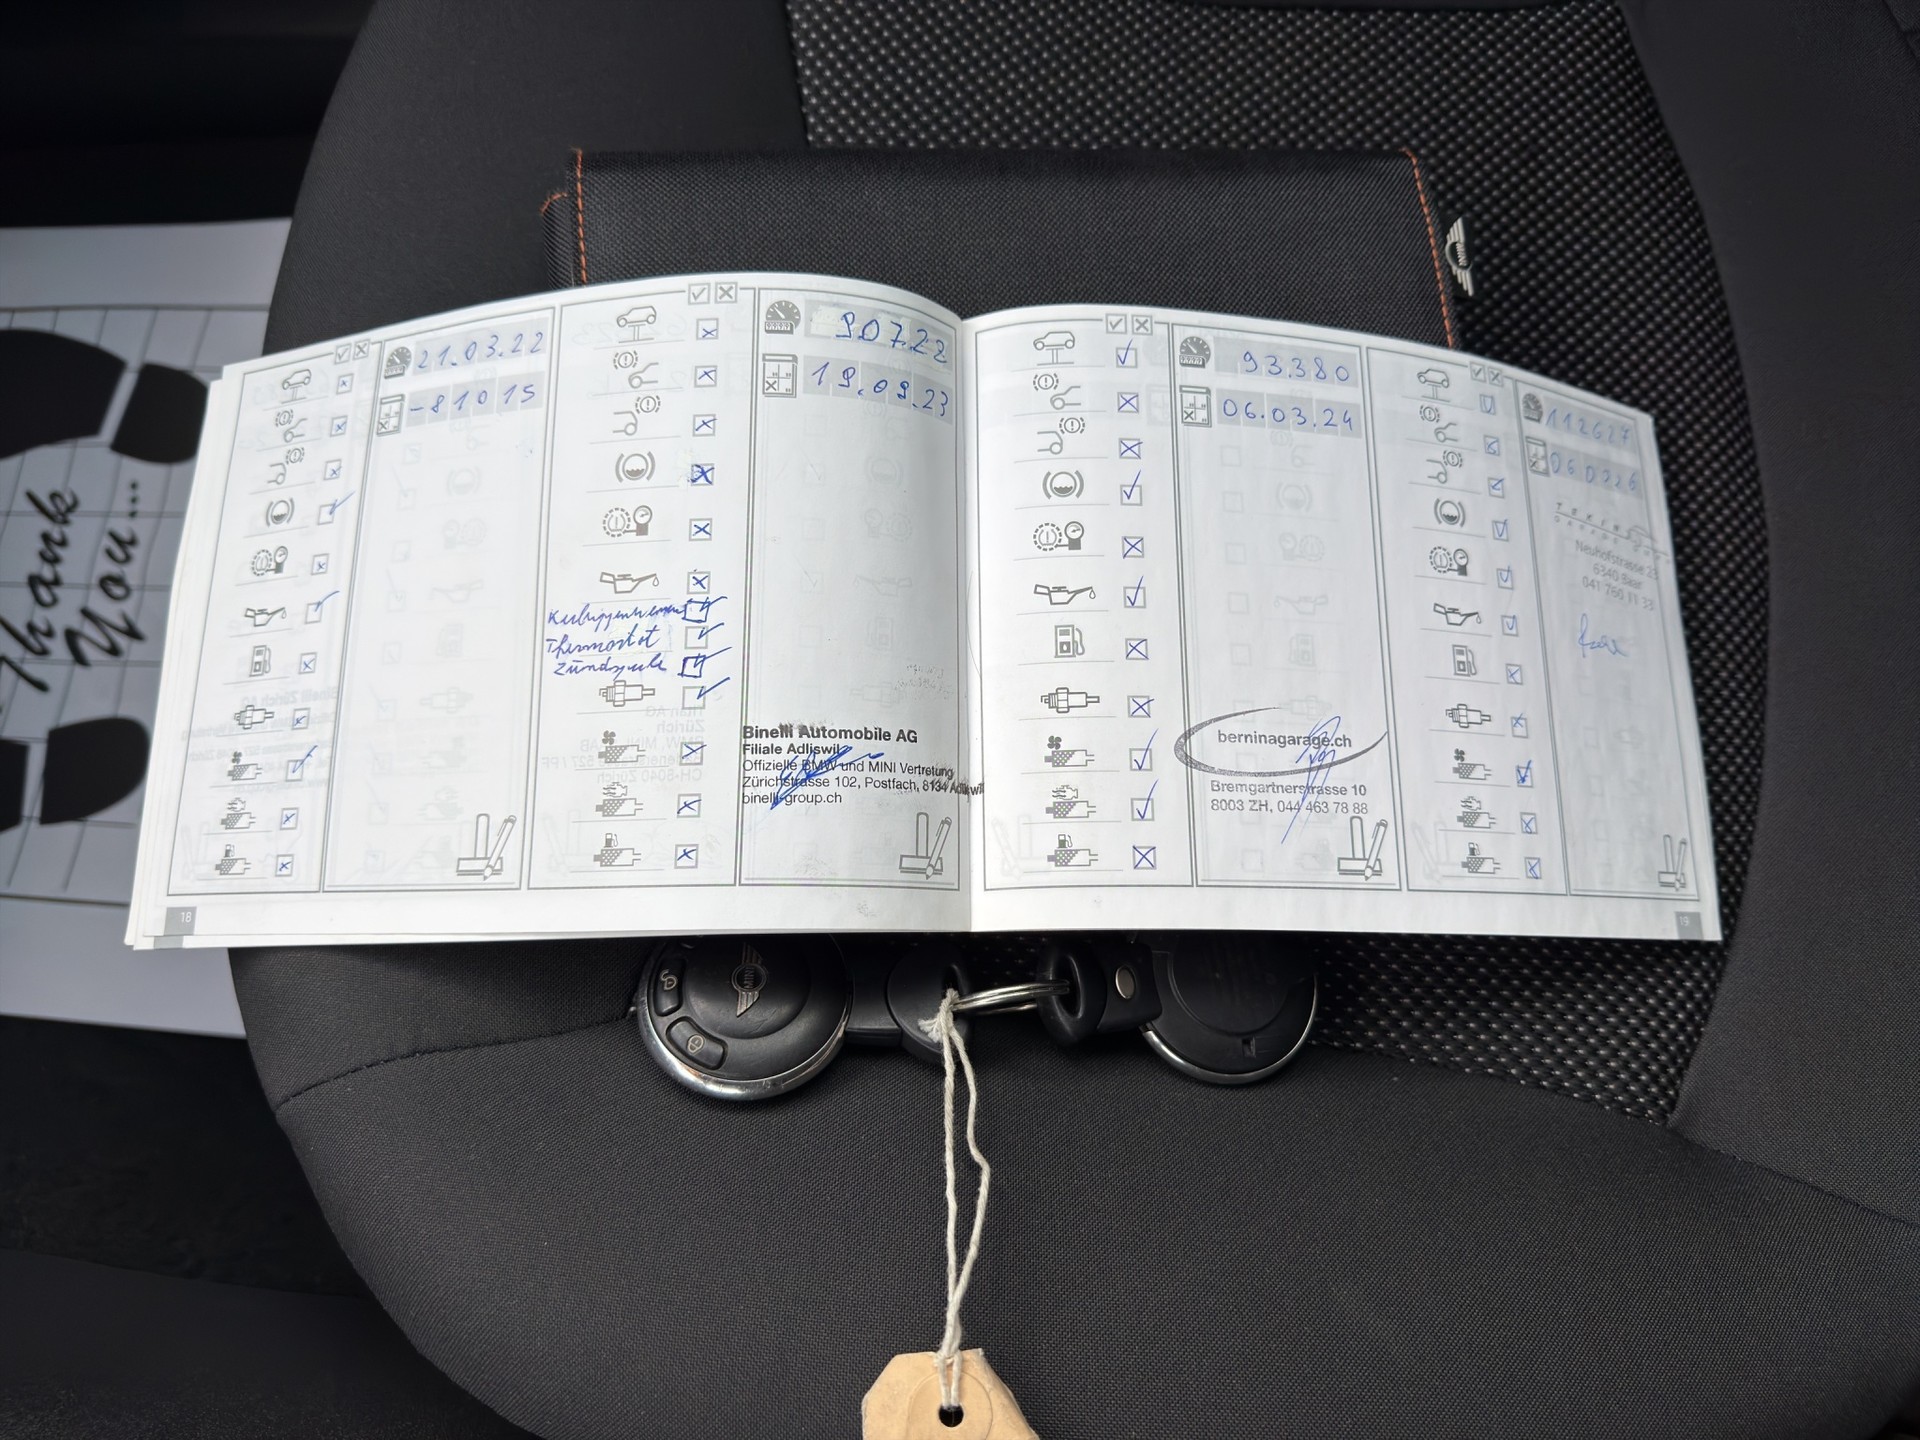 Thank
You...
21.03.22
-81015
Thermostat
Zündspule
90722
19.09.23
Binelli Automobile AG
Filiale Adliswil
Offizielle BMW und MINI Vertretung
Zürichstrasse 102, Postfach, 8134 Adliswil
binelli-group.ch
18
93.380
06.03.24
berninagarage.ch
Bremgartnerstrasse 10
8003 ZH, 044 463 78 88
112627
060226
Neuhofstrasse
6340 Baar
041 760 11 33
19
MINI
MINI